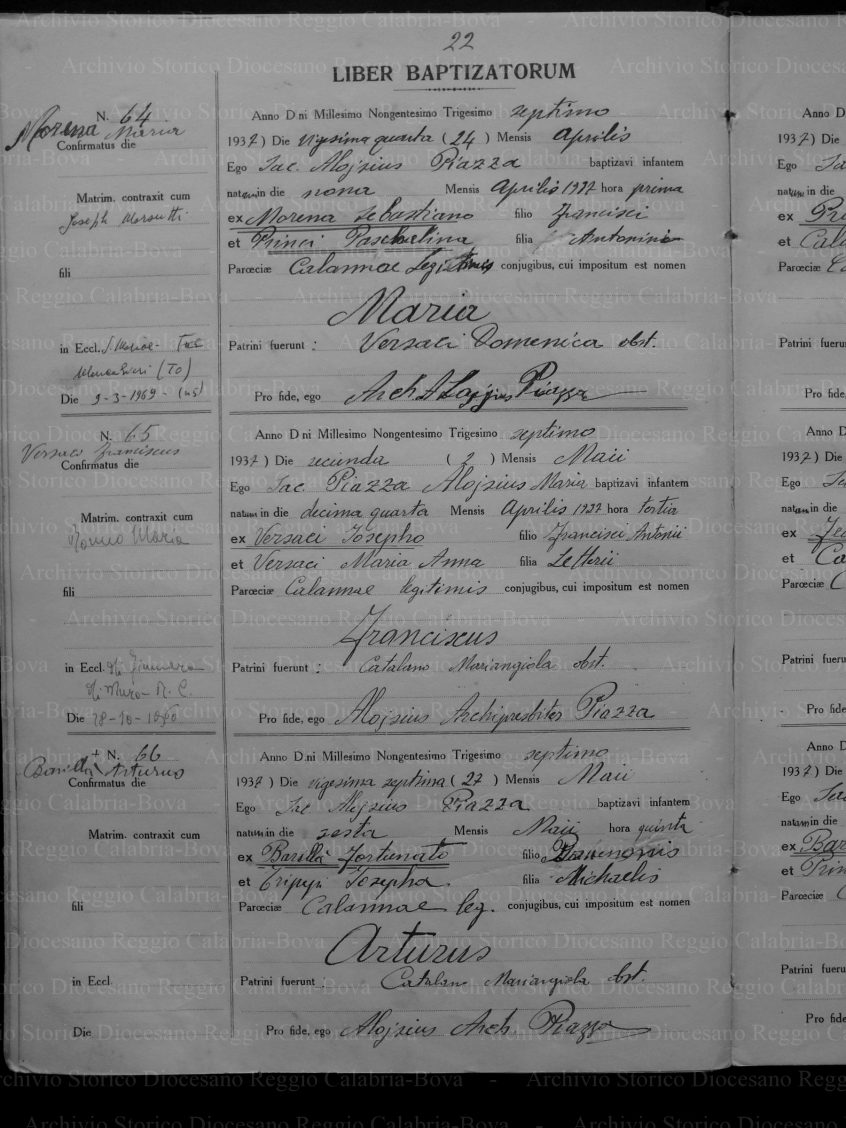 22
LIBER BAPTIZATORUM
N. 64
Morena Maria
Confirmatus die
Matrim. contraxit cum
Joseph
fili
in Eccl. S. Mariae
(TO)
Die 9-3-1969
Anno D ni Millesimo Nongentesimo Trigesimo septimo
1937 ) Die vigesima quarta ( 24 ) Mensis Aprilis
Ego Sac. Aloјsius Piazza baptizavi infantem
natam in die nona Mensis Aprilis 1937 hora prima
ex Morena Sebastiano filio Francisci
et Princi Paschalina filia Antonini
Parœciæ Calannae legitimis conjugibus, cui impositum est nomen
Maria
Patrini fuerunt : Versaci Domenica obst.
Pro fide, ego Arch. Alojsius Piazza
N. 65
Versaci Franciscus
Confirmatus die
Matrim. contraxit cum
Romeo Maria
fili
in Eccl.
Die 28-10-1960
Anno D ni Millesimo Nongentesimo Trigesimo septimo
1937 ) Die secunda ( 2 ) Mensis Maii
Ego Sac. Piazza Alojsius Maria baptizavi infantem
natum in die decima quarta Mensis Aprilis 1937 hora tertia
ex Versaci Josepho filio Francisci Antonii
et Versaci Maria Anna filia Letterii
Parœciæ Calannae legitimis conjugibus, cui impositum est nomen
Franciscus
Patrini fuerunt : Catalano Mariangiola obst.
Pro fide, ego Alojsius Archipresbiter Piazza
+ N. 66
Barillà Arturus
Confirmatus die
Matrim. contraxit cum
fili
in Eccl.
Die
Anno D ni Millesimo Nongentesimo Trigesimo septimo
1937 ) Die vigesima septima ( 27 ) Mensis Maii
Ego Sac Alojsius Piazza baptizavi infantem
natum in die sesta Mensis Maii hora quinta
ex Barillà Fortunato filio
et Tripepi Josepha filia Michaelis
Parœciæ Calannae leg. conjugibus, cui impositum est nomen
Arturus
Patrini fuerunt : Catalano Mariangiola obst.
Pro fide, ego Alojsius Arch. Piazza
Archivio Storico Diocesano Reggio Calabria-Bova